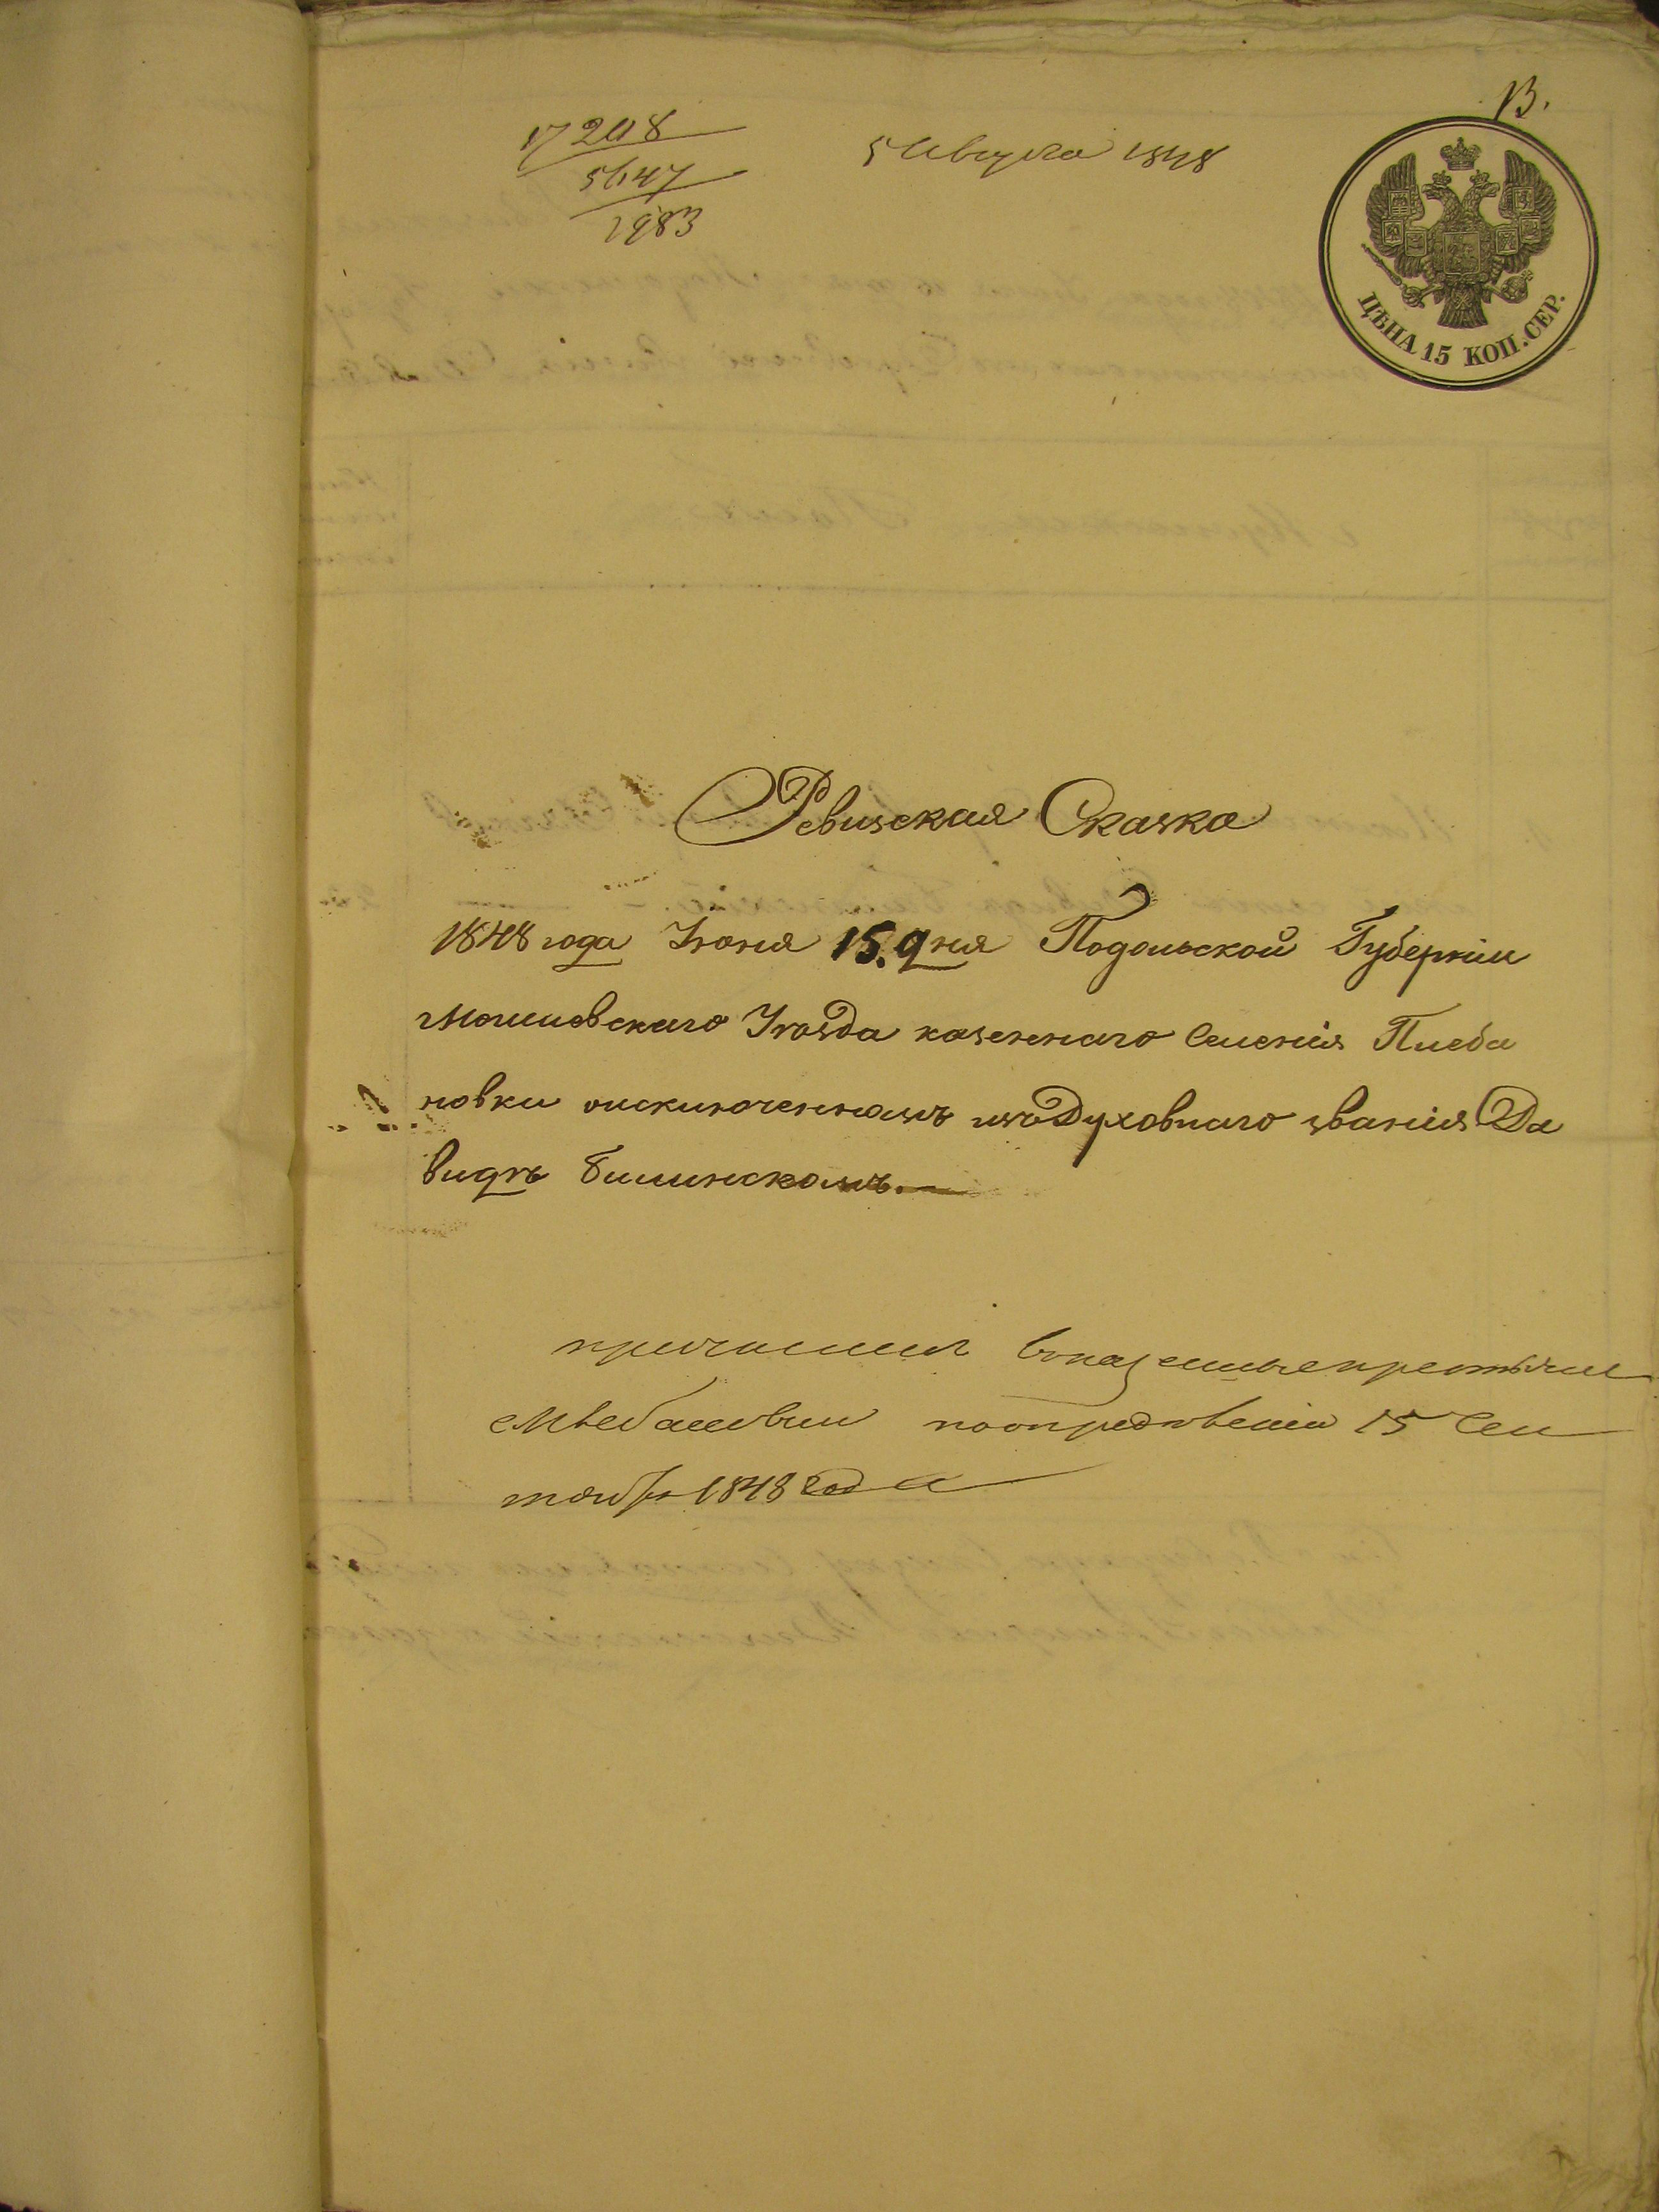 В.
17208
5647
1983
5 Августа 1848
ЦѢНА 15 КОП. СЕР.
Ревизская Сказка
1848 года Іюня 15. дня Подольской Губерніи
Могилевскаго Уѣзда казеннаго Селенія Плеба
новки оисключенномъ изъ Духовнаго званія Да
видѣ Билинскомъ.
въказенные крестьяне
поопредѣленію 15 Сен
тября 1848 года